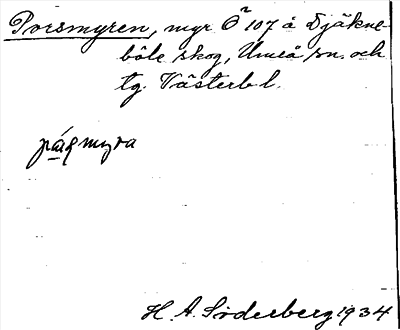 Porsmyren, myr Öᵃ 107 å Djäkne-
böle skog, Umeå sn. och
tg. Västerb l.
myra
H. A. Söderberg 1934